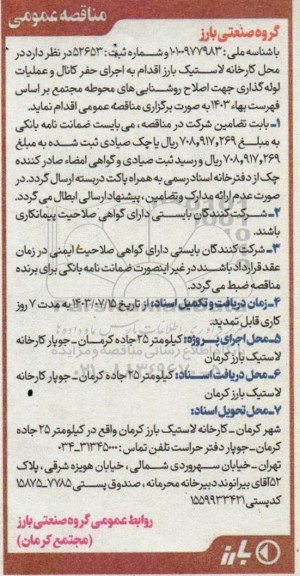 مناقصه عمومی
گروه صنعتی بارز
باشناسه ملی: ۱۰۱۰۰۹۷۷۹۸۳ و شماره ثبت: ۵۲۶۵۳ در نظر دارد در
محل کارخانه لاستیک بارز اقدام به اجرای حفر کانال و عملیات
لوله گذاری جهت اصلاح روشنایی های محوطه مجتمع بر اساس
فهرست بهاء ۱۴۰۳ به صورت برگزاری مناقصه عمومی اقدام نماید.
۱- بابت تضامین شرکت در مناقصه ، می بایست ضمانت نامه بانکی
به مبلغ ۷۰۸,۹۱۷,۲۶۹ ریال یا چک صیادی ثبت شده به مبلغ
۷۰۸,۹۱۷,۲۶۹ ریال و رسید ثبت صیادی و گواهی امضاء صادر کننده
چک از دفترخانه اسناد رسمی به همراه پاکت دربسته ارسال گردد. در
صورت عدم ارائه مدارک وتضامین ، پیشنهاد ارسالی ابطال می گردد.
۲- شرکت کنندگان بایستی دارای گواهی صلاحیت پیمانکاری
باشند.
۳- شرکت کنندگان بایستی دارای گواهی صلاحیت ایمنی در زمان
عقد قرارداد باشند در غیر اینصورت ضمانت نامه بانکی برای برنده
مناقصه ضبط می گردد.
۴- زمان دریافت و تکمیل اسناد: از تاریخ ۱۴۰۳/۰۷/۱۵ به مدت ۷ روز
کاری قابل تمدید.
۵- محل اجرای پروژه: کیلومتر ۲۵ جاده کرمان - جوپار کارخانه
لاستیک بارز کرمان
۶- محل دریافت اسناد: کیلومتر ۲۵ جاده کرمان - جوپار کارخانه
لاستیک بارز کرمان
۷- محل تحویل اسناد:
شهر کرمان - کارخانه لاستیک بارز کرمان واقع در کیلومتر ۲۵ جاده
کرمان- جوپار دفتر حراست تلفن تماس: ۳۱۳۴۵۰۰۰-۰۳۴
تهران - خیابان سهروردی شمالی ، خیابان هویزه شرقی ، پلاک
۵۲ آقای بیرانوند دبیرخانه محرمانه ، صندوق پستی ۷۷۸۵-۱۵۸۷۵
کدپستی ۱۵۵۹۹۳۳۴۲۱
روابط عمومی گروه صنعتی بارز
(مجتمع کرمان)
بارز